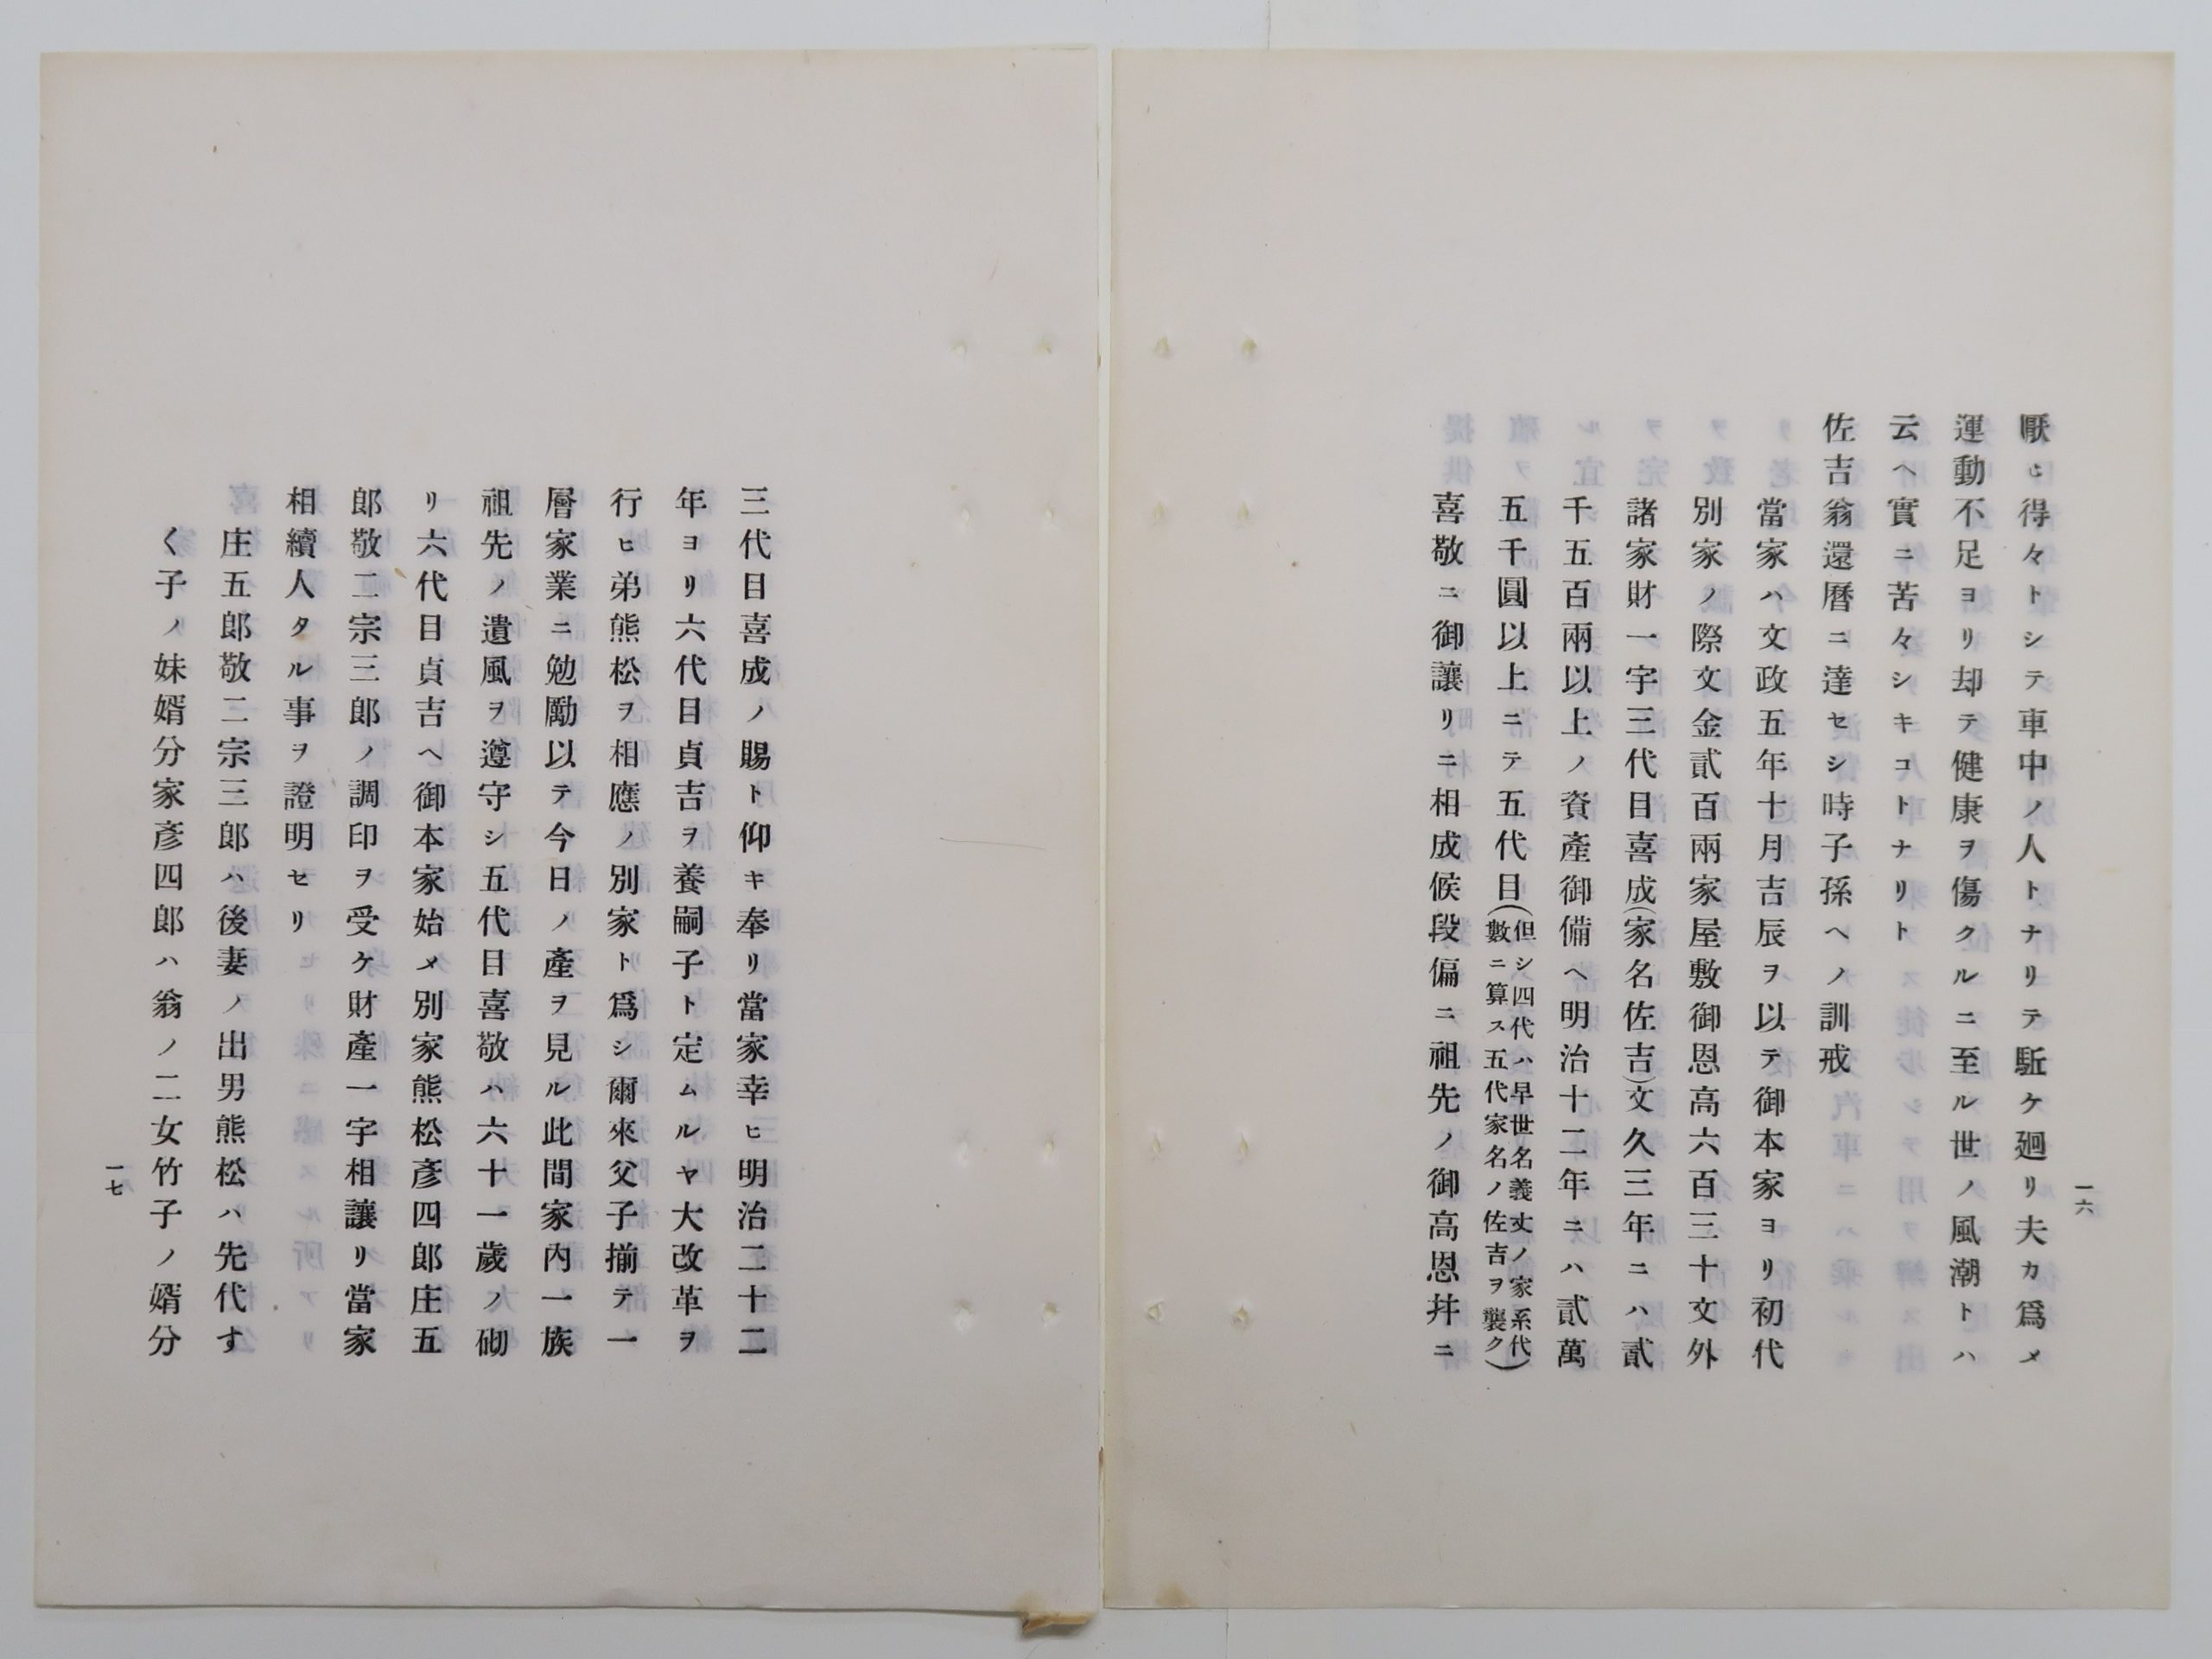 厭ヒ得々トシテ車中ノ人トナリテ駈ケ廻リ夫カ爲メ
運動不足ヨリ却テ健康ヲ傷クルニ至ル世ノ風潮トハ
云ヘ實ニ苦々シキコトナリト
佐吉翁還曆ニ達セシ時子孫ヘノ訓戒
當家ハ文政五年十月吉辰ヲ以テ御本家ヨリ初代
別家ノ際文金貳百兩家屋敷御恩高六百三十文外
諸家財一宇三代目喜成(家名佐吉)文久三年ニハ貳
千五百兩以上ノ資產御備ヘ明治十二年ニハ貳萬
五千圓以上ニテ五代目(但シ四代ハ早世名義丈ノ家系代
數ニ算ス五代家名ノ佐吉ヲ襲ク)
喜敬ニ御讓リニ相成候段偏ニ祖先ノ御高恩幷ニ
一六
三代目喜成ノ賜ト仰キ奉リ當家幸ヒ明治二十二
年ヨリ六代目貞吉ヲ養嗣子ト定ムルヤ大改革ヲ
行ヒ弟熊松ヲ相應ノ別家ト爲シ爾來父子揃テ一
層家業ニ勉勵以テ今日ノ產ヲ見ル此間家內一族
祖先ノ遺風ヲ遵守シ五代目喜敬ハ六十一歲ノ砌
リ六代目貞吉ヘ御本家始メ別家熊松彥四郎庄五
郎敬二宗三郎ノ調印ヲ受ケ財產一宇相讓リ當家
相續人タル事ヲ證明セリ
庄五郎敬二宗三郎ハ後妻ノ出男熊松ハ先代す
く子ノ妹婿分家彥四郎ハ翁ノ二女竹子ノ婿分
一七